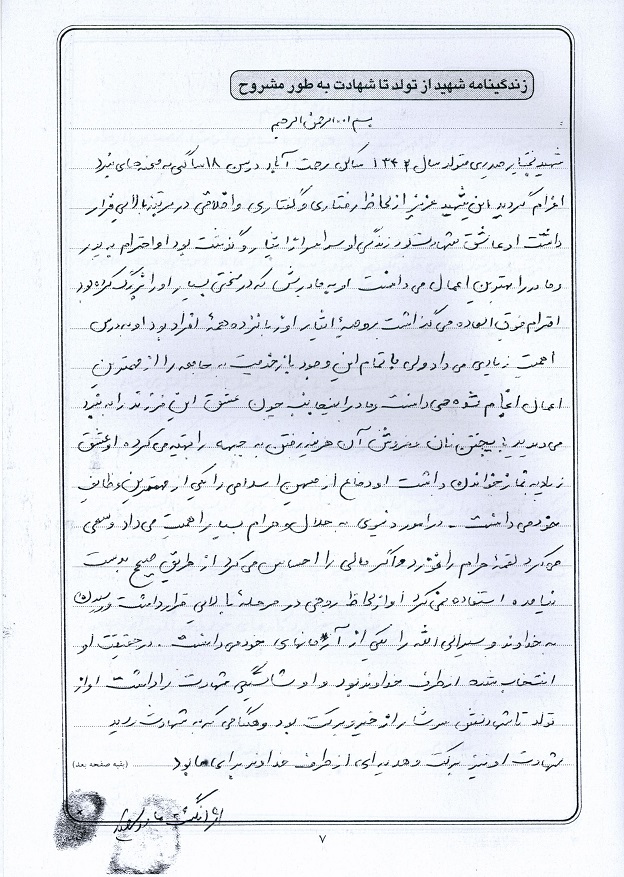 زندگینامه شهید از تولد تا شهادت به طور مشروح
بسم الله الرحمن الرحیم
شهید حیدری متولد سال ۱۳۴۲ ساکن رحمت آباد در سن ۱۸ سالگی به نبرد
اعزام گردید این شهید عزیز از لحاظ رفتاری و گفتاری و اخلاقی در مرتبه بالایی قرار
داشت او عاشق شهادت بود زندگی او سراسر از ایثار و گذشت بود او احترام به پدر
و مادر را بهترین اعمال می دانست او به مادرش که در سختی بسیار او را بزرگ کرده بود
احترام فوق العاده می گذاشت روحیه ایثار او زبانزد همه افراد بود او به درس
اهمیت زیادی می داد ولی با تمام این وجود باز خدمت به جامعه را از مهمترین
اعمال انجام شده می دانست مادر اینجانب چون عشق این فرزند را به نبرد
می دید با پختن نان و فروش آن هزینه رفتن به جبهه را تهیه می کرده او عشق
زیاد به نماز خواندن داشت او دفاع از میهن اسلامی را یکی از مهمترین وظایف
خود می دانست . در امور دنیوی به حلال و حرام بسیار اهمیت می داد و سعی
می کرد لقمه حرام را نخورد و اگر مالی را احساس می کرد از طریق صحیح بدست
نیامده استفاده نمی کرد او از لحاظ روحی در مرحله بالایی قرار داشت و رسیدن
به خداوند و سیر الی الله را یکی از آرمانهای خود می دانست . در حقیقت او
انتخاب شده از طرف خداوند بود و او شایستگی شهادت را داشت او از
تولد تا شهادتش سرشار از خیر و برکت بود و هنگامی که به شهادت رسید
شهادت او نیز برکت و هدیه ای از طرف خداوند برای ما بود
(بقیه صفحه بعد)
اثر انگشت مادر شهید
۷